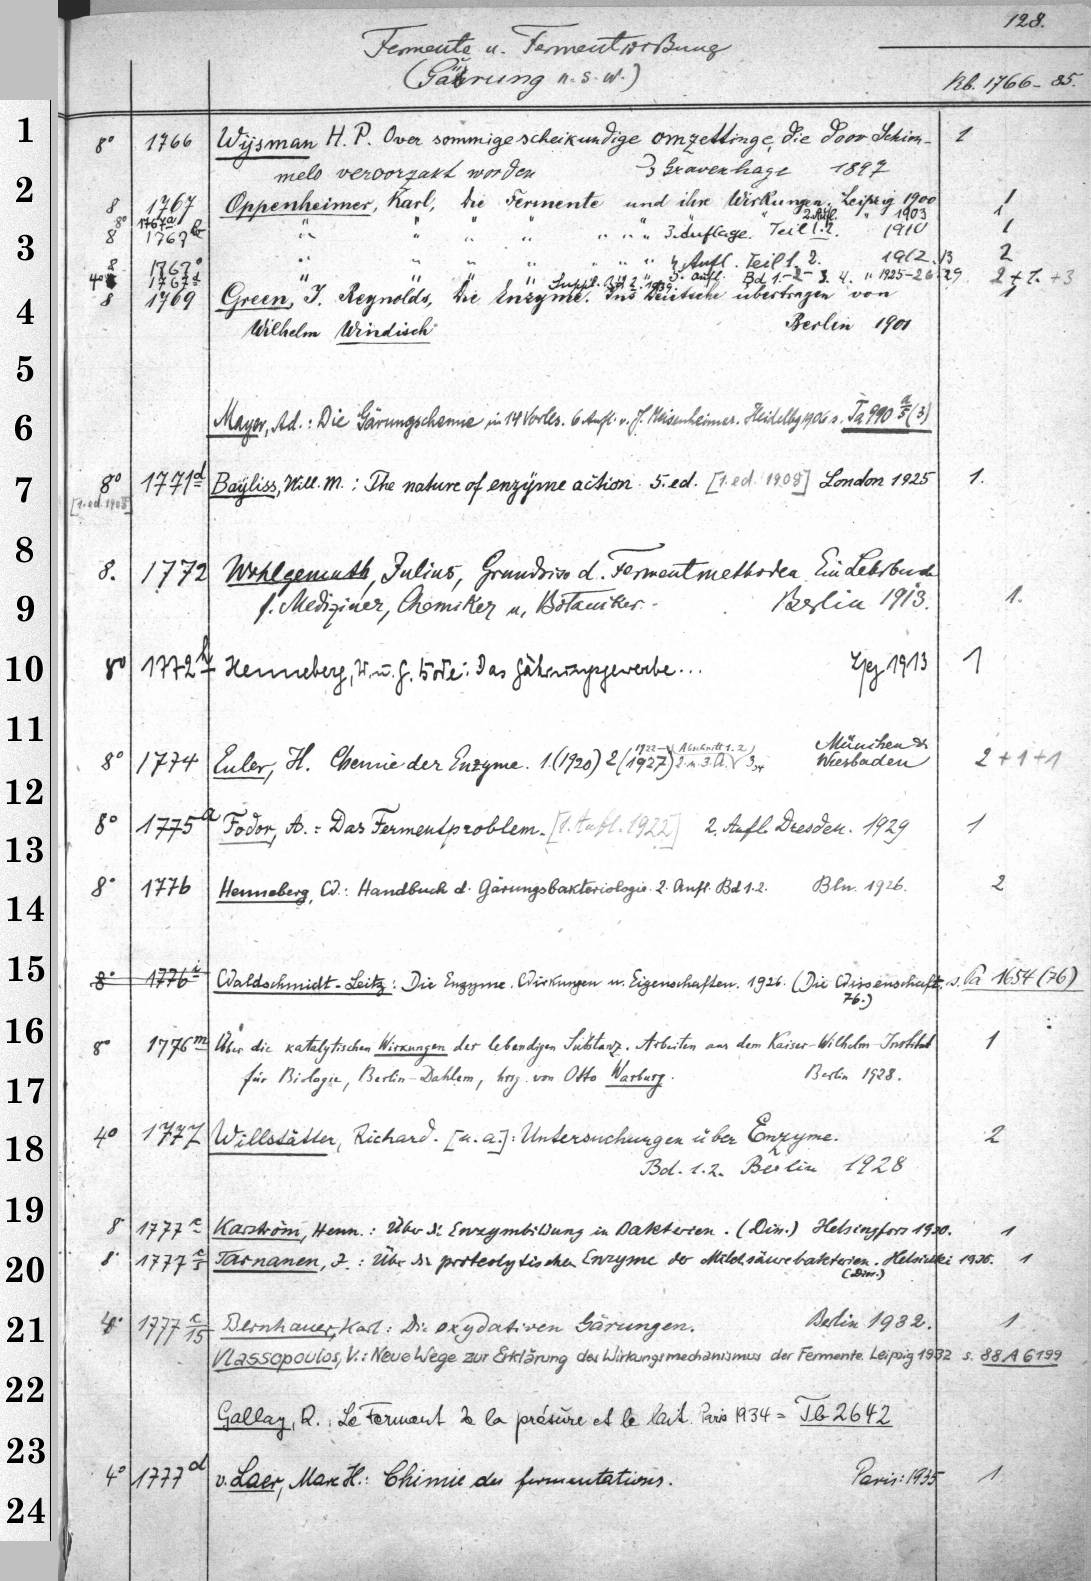 128.
Fermente u. Fermentwirkung
(Gärung u. s. w.)
Kb. 1766-85.
1
8° 1766 Wijsman H. P. Over sommige scheikundige omzettinge, die door Schim- 1
melo veroorzakt worden 's Gravenhage 1897
2
8 1767 Oppenheimer, Karl, Die Fermente und ihre Wirkungen, Leipzig 1900 1
8° 1767a " " " " " " 2. Aufl. " 1903 1
3
8 1767b " " " " " " " 3. Auflage. Teil 1.2. 1910 1
8 1767c " " " " " " " 4 Aufl. Teil 1. 2. 1912.13 2
4° 1767d " " " " 5. Aufl. Bd 1.-2- 3. 4. " 1925-26.29 2+1.+3
Suppl. Bd 2. 1939.
4
8 1769 Green, J. Reynolds, Die Enzyme. Ins Deutsche übertragen von 1
Wilhelm Windisch Berlin 1901
5
6
Mayer, Ad.: Die Gärungschemie in 14 Vorles. 6 Aufl. v. J. Meisenheimer. Heidelbg 1906 s. Ta 990 a/5 (3)
7
8° 1771d Bayliss, Will. M.: The nature of enzyme action. 5. ed. [1. ed. 1908] London 1925 1.
[1. ed. 1908]
8
8. 1772 Wohlgemuth, Julius, Grundriss d. Fermentmethoden. Ein Lehrbuch
9
f. Mediziner, Chemiker u. Botaniker. Berlin 1913. 1.
10
8° 1772h Henneberg, W. u. G. Bode: Das Gährungsgewerbe... Lpzg 1913 1
11
8° 1774 Euler, H. Chemie der Enzyme. 1.(1920) 2(1927) 2. u. 3. A. 1922- (Abschnitt 1.2) 3 34 München & Wiesbaden 2+1+1
12
8° 1775a Fodor, A. = Das Fermentproblem. [1. Aufl. 1922] 2. Aufl. Dresden. 1929 1
13
8° 1776 Henneberg, W.: Handbuch d. Gärungsbakteriologie. 2. Aufl. Bd 1.2. Bln. 1926. 2
14
15
8° 1776i Waldschmidt-Leitz: Die Enzyme. Wirkungen u. Eigenschaften. 1926. (Die Wissenschaft. s. Pa 1654 (76)
76.)
16
8° 1776m Über die katalytischen Wirkungen der lebendigen Substanz. Arbeiten aus dem Kaiser-Wilhelm-Institut 1
17
für Biologie, Berlin-Dahlem, hrg. von Otto Warburg. Berlin 1928.
18
4° 1777 Willstätter, Richard. [u. a.]: Untersuchungen über Enzyme. 2
Bd. 1.2. Berlin 1928
19
8° 1777c Karström, Henn.: Über die Enzymbildung in Bakterien. (Diss.) Helsingfors 1930. 1
20
8° 1777c/5 Tarnanen, J.: Über die proteolytischen Enzyme der Milchsäurebakterien. Helsinki 1930. 1
(Diss.)
21
4° 1777c/15 Bernhauer, Karl: Die oxydativen Gärungen. Berlin 1932. 1
Vlassopoulos, V.: Neue Wege zur Erklärung des Wirkungsmechanismus der Fermente. Leipzig 1932 s. 88 A 6199
22
Gallay, R.: Le Ferment de la présure et le lait. Paris 1934 = Tb 2642
23
4° 1777d v. Laer, Max H.: Chimie des fermentations. Paris: 1935 1
24